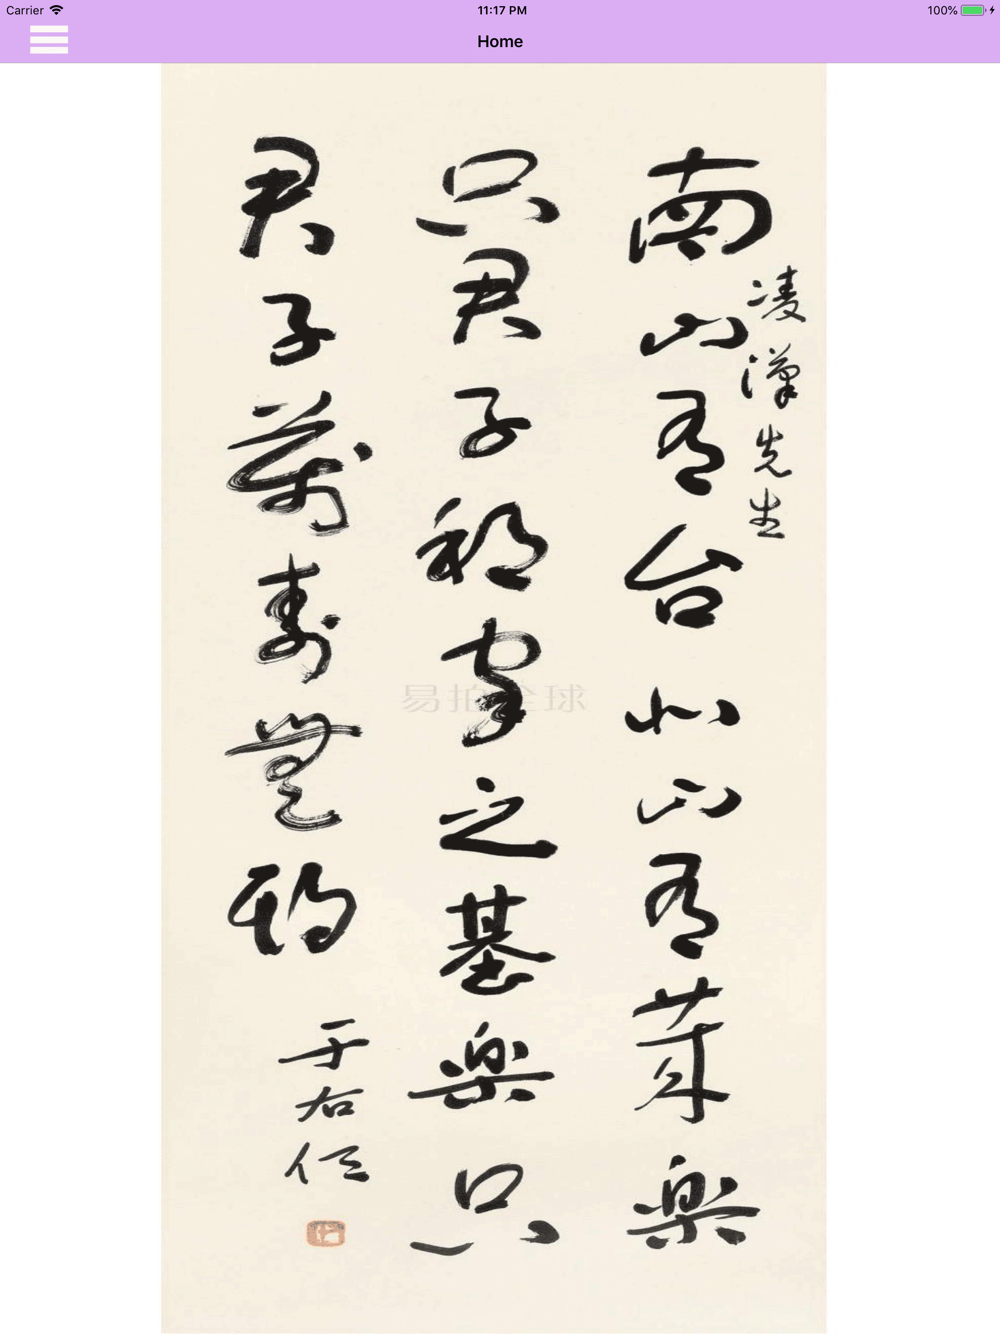 Carrier
11:17 PM
100%
Home
凌漢先生
南山有台北山有萊樂
只君子邦家之基樂只
君子萬壽無期
于右任
易拍全球